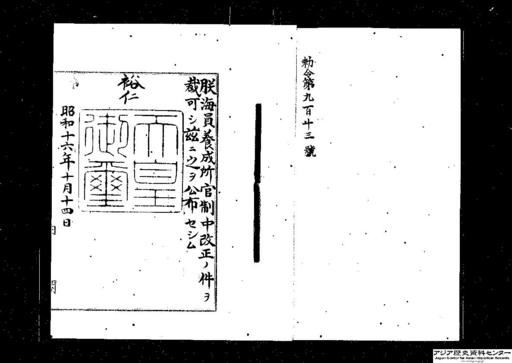 勅令第九百十三號
朕海員養成所官制中改正ノ件ヲ
裁可シ茲ニ之ヲ公布セシム
裕仁
天皇
御璽
昭和十六年十月十四日
アジア歴史資料センター
Japan Center for Asian Historical Records